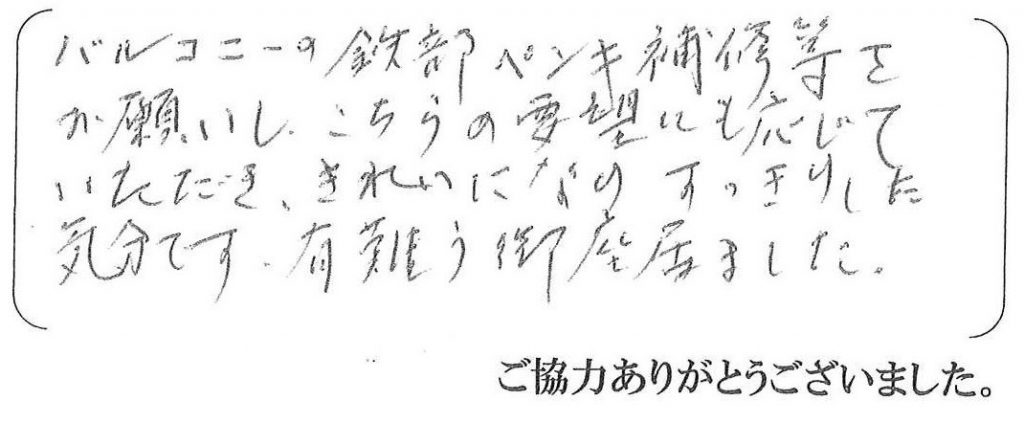 バルコニーの鉄部ペンキ補修等を
お願いし、こちらの要望にも応じて
いただき、きれいになりすっきりした
気分です。有難う御座居ました。
ご協力ありがとうございました。